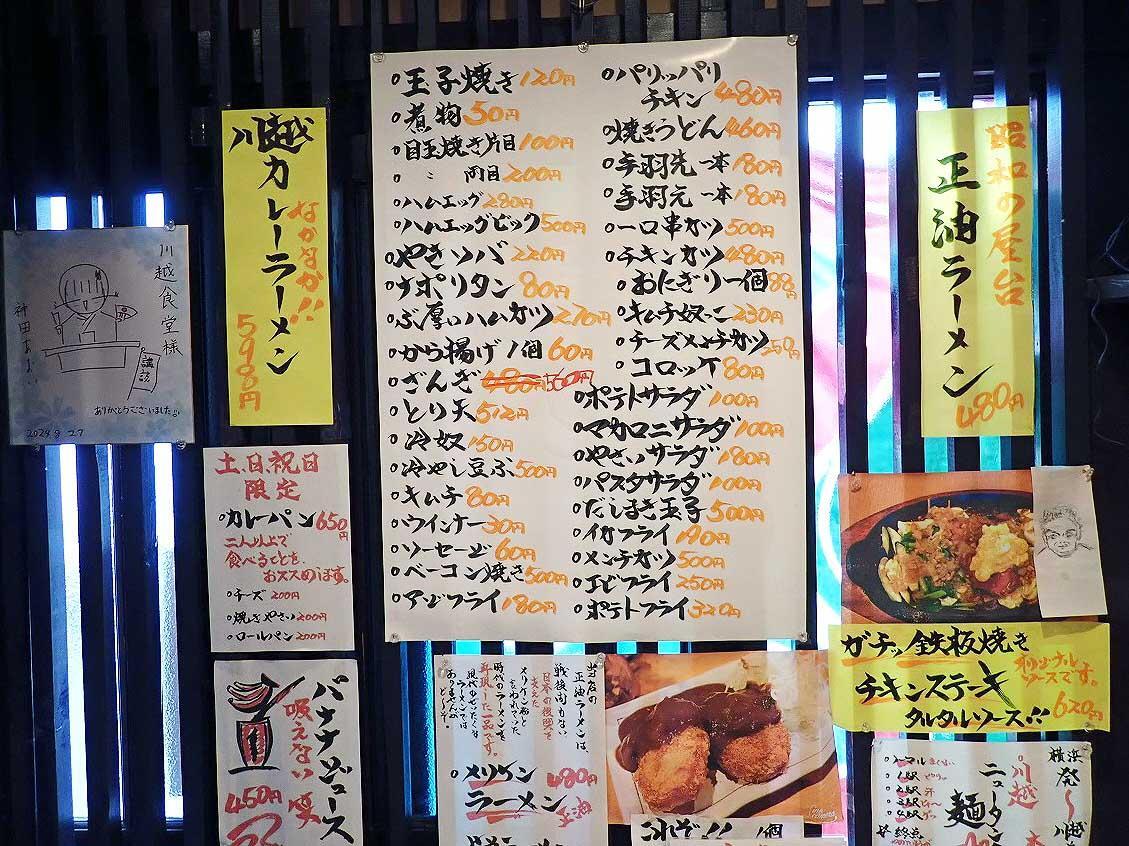 川越カレーラーメン
なかなか!!
川越食堂様
神田
講談
ありがとうございました
土、日、祝日
限定
○カレーパン650円
二人以上で
食べることを
おススめします。
○チーズ200円
○焼きやさい200円
○ロールパン200円
バナナジュース
吸えない 笑
450円
○玉子焼き120円
○煮物50円
○目玉焼き片目100円
○〃 両目200円
○ハムエッグ280円
○ハムエッグビック500円
○やきソバ220円
○ナポリタン80円
○ぶ厚いハムカツ270円
○から揚げ1個60円
○ざんぎ480円560円
○とり天512円
○冷奴150円
○冷やし豆ふ500円
○キムチ80円
○ウインナー30円
○ソーセージ60円
○ベーコン焼き500円
○アジフライ180円
○パリッパリ
チキン480円
○焼きうどん460円
○手羽先一本180円
○手羽元一本180円
○一口串カツ500円
○チキンカツ480円
○おにぎり一個88円
○キムチ奴っこ230円
○チーズメンチカツ250円
○コロッケ80円
○ポテトサラダ100円
○マカロニサラダ100円
○やさいサラダ180円
○パスタサラダ100円
○だしまき玉子500円
○イカフライ190円
○メンチカツ500円
○エビフライ250円
○ポテトフライ320円
昭和の屋台
正油ラーメン
480円
ガチッ鉄板焼き
オリジナル
ソースです。
チキンステーキ
タルタルソース!!
620円
当店の
正油ラーメンは、
戦後間もない
日本の復興を
支えた
メリケン粉と
言われていた
時代のラーメンを
再現した一品です。
○メリケン
ラーメン
480円
正油
これぞ!! 1個
横浜
発〜川越
ニュータン
麺